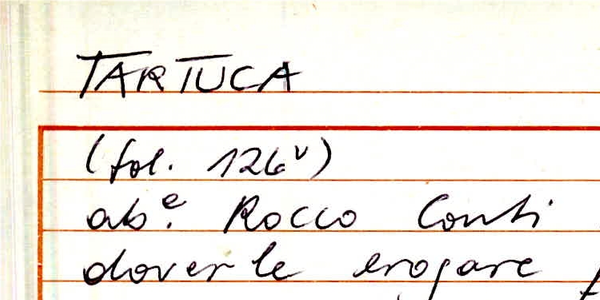 TARTUCA
(fol. 126v)
abe. Rocco Conti
doverle erogare